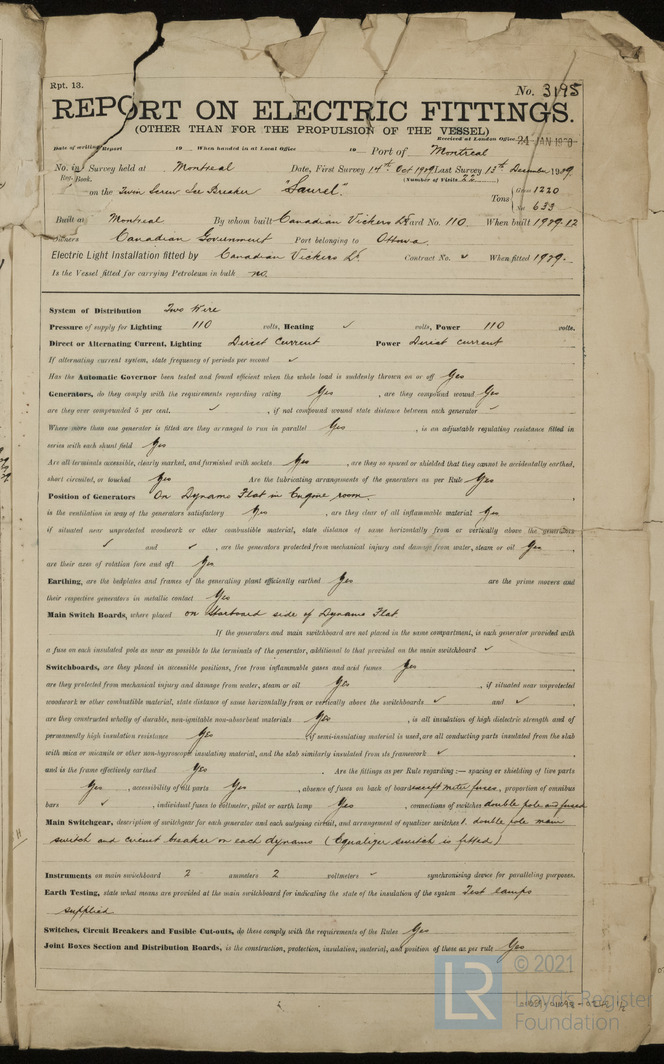 Rpt. 13.
No. 3195
REPORT ON ELECTRIC FITTINGS.
(OTHER THAN FOR THE PROPULSION OF THE VESSEL)
Received at London Office 24 JAN 1930
Date of writing Report 19 When handed in at Local Office 19 Port of Montreal
No. in Survey held at Montreal Date, First Survey 14th Oct 1929 Last Survey 13th December 1929
Reg. Book. (Number of Visits 22
on the Twin Screw Ice Breaker "Saurel". Tons { Gross 1220
Net 633
Built at Montreal By whom built Canadian Vickers Ld Yard No. 110 When built 1929.12
Owners Canadian Government Port belonging to Ottawa
Electric Light Installation fitted by Canadian Vickers Ld. Contract No. ✓ When fitted 1929.
Is the Vessel fitted for carrying Petroleum in bulk no.
System of Distribution Two Wire
Pressure of supply for Lighting 110 volts, Heating ✓ volts, Power 110 volts.
Direct or Alternating Current, Lighting Direct Current Power Direct current
If alternating current system, state frequency of periods per second ✓
Has the Automatic Governor been tested and found efficient when the whole load is suddenly thrown on or off Yes
Generators, do they comply with the requirements regarding rating Yes , are they compound wound Yes
are they over compounded 5 per cent. ✓ , if not compound wound state distance between each generator ✓
Where more than one generator is fitted are they arranged to run in parallel Yes , is an adjustable regulating resistance fitted in
series with each shunt field Yes
Are all terminals accessible, clearly marked, and furnished with sockets Yes , are they so spaced or shielded that they cannot be accidentally earthed,
short circuited, or touched Yes Are the lubricating arrangements of the generators as per Rule Yes
Position of Generators On Dynamo Flat in Engine room.
is the ventilation in way of the generators satisfactory Yes , are they clear of all inflammable material Yes
if situated near unprotected woodwork or other combustible material, state distance of same horizontally from or vertically above the generators
✓ and ✓ , are the generators protected from mechanical injury and damage from water, steam or oil Yes
are their axes of rotation fore and aft Yes
Earthing, are the bedplates and frames of the generating plant efficiently earthed Yes are the prime movers and
their respective generators in metallic contact Yes
Main Switch Boards, where placed on starboard side of Dynamo Flat.
If the generators and main switchboard are not placed in the same compartment, is each generator provided with
a fuse on each insulated pole as near as possible to the terminals of the generator, additional to that provided on the main switchboard ✓
Switchboards, are they placed in accessible positions, free from inflammable gases and acid fumes Yes
are they protected from mechanical injury and damage from water, steam or oil Yes , if situated near unprotected
woodwork or other combustible material, state distance of same horizontally from or vertically above the switchboards ✓ and ✓
are they constructed wholly of durable, non-ignitable non-absorbent materials Yes , is all insulation of high dielectric strength and of
permanently high insulation resistance Yes , if semi-insulating material is used, are all conducting parts insulated from the slab
with mica or micanite or other non-hygroscopic insulating material, and the slab similarly insulated from its framework ✓
and is the frame effectively earthed Yes . Are the fittings as per Rule regarding :— spacing or shielding of live parts
Yes , accessibility of all parts Yes , absence of fuses on back of board except meter fuses, proportion of omnibus
bars ✓ , individual fuses to voltmeter, pilot or earth lamp Yes , connections of switches double pole and fused
Main Switchgear, description of switchgear for each generator and each outgoing circuit, and arrangement of equalizer switches 1. double pole main
switch and circuit breaker on each dynamo (Equalizer switch is fitted)
Instruments on main switchboard 2 ammeters 2 voltmeters ✓ synchronising device for paralleling purposes.
Earth Testing, state what means are provided at the main switchboard for indicating the state of the insulation of the system Test lamps
supplied
Switches, Circuit Breakers and Fusible Cut-outs, do these comply with the requirements of the Rules Yes
Joint Boxes Section and Distribution Boards, is the construction, protection, insulation, material, and position of these as per rule Yes
© 2021
LR
Lloyd's Register
Foundation